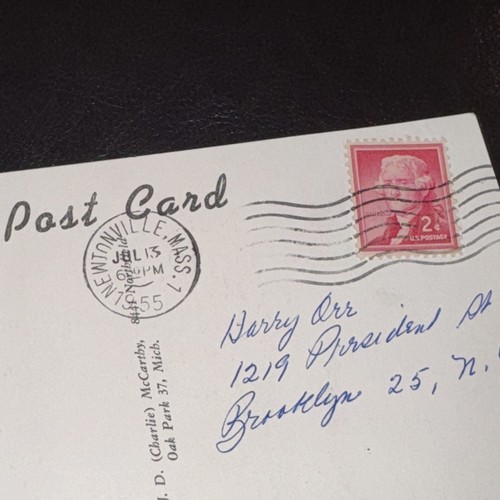 Post Card
NEWTONVILLE, MASS. 1
JUL 13
PM
1955
2¢
U.S. POSTAGE
Harry Orr
1219 President St
Brooklyn 25, N.
J. D. (Charlie) McCarthy,
8441 Northfield
Oak Park 37, Mich.